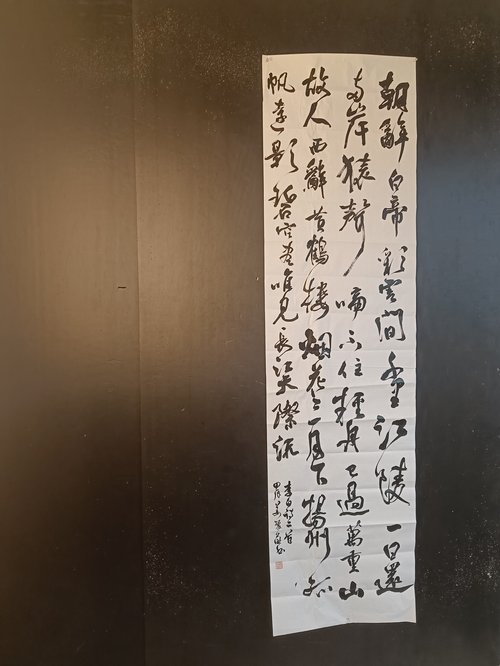 朝辭白帝彩雲間千里江陵一日還
兩岸猿聲啼不住輕舟已過萬重山
故人西辭黃鶴樓烟花三月下揚州孤
帆遠影碧空盡唯見長江天際流
李白詩二首